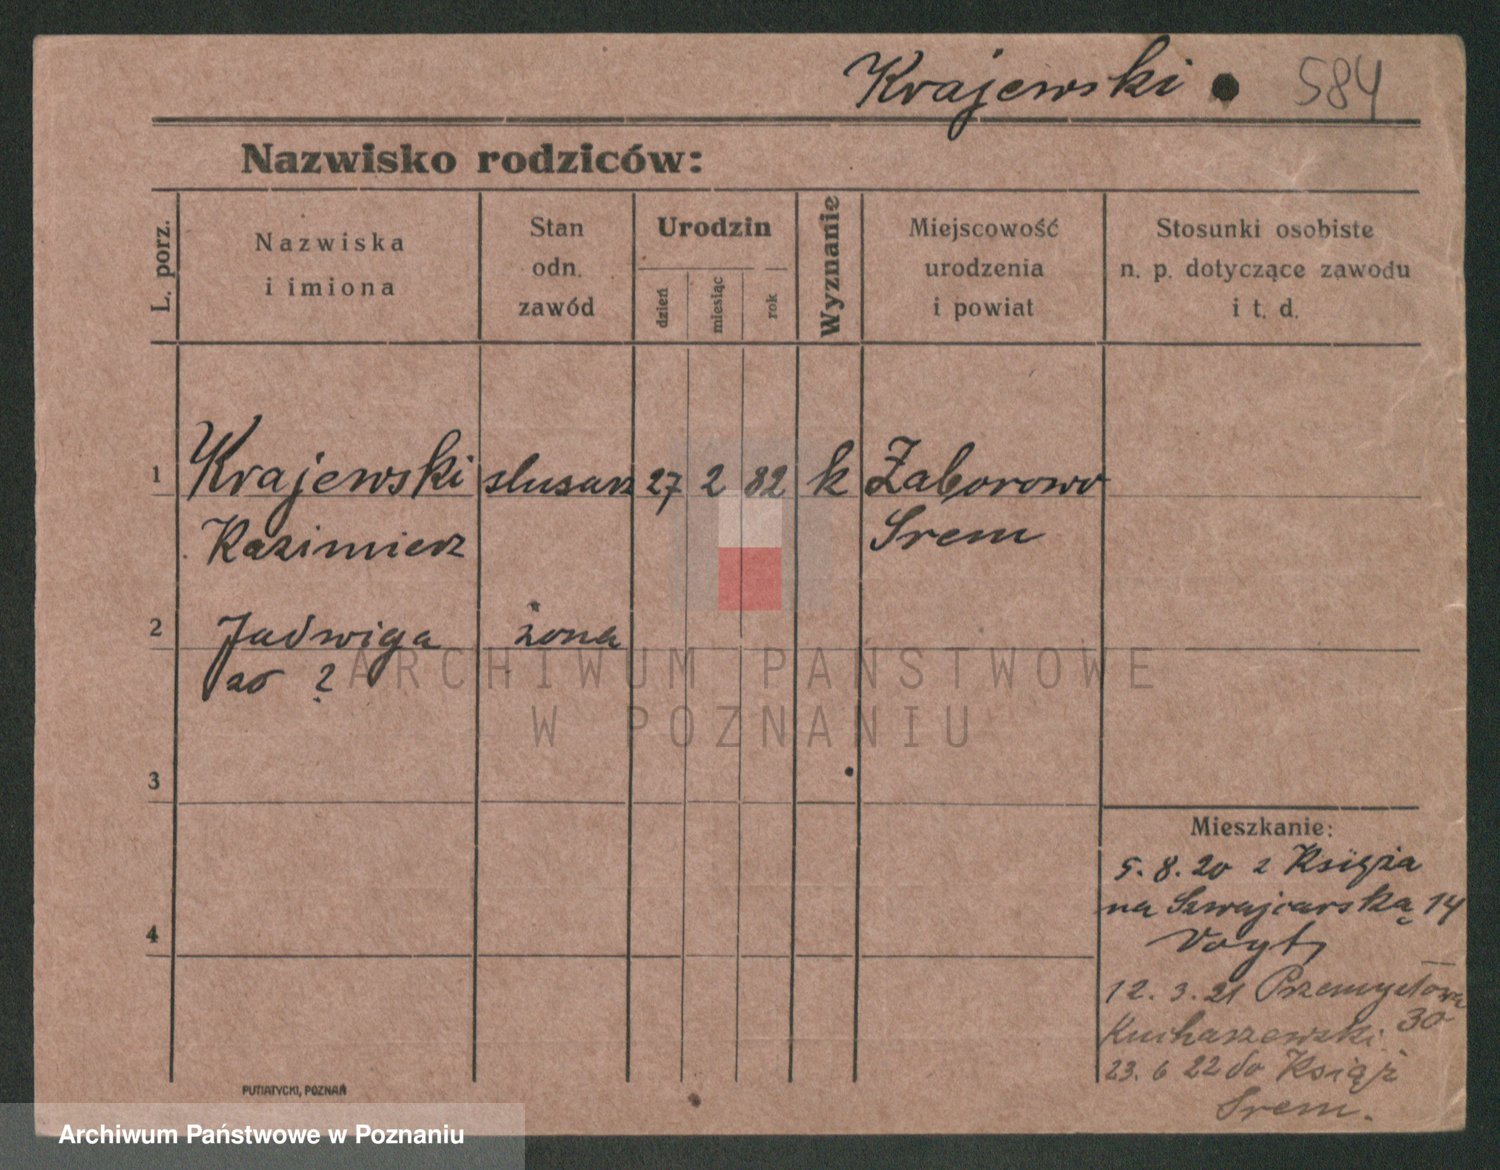 Krajewski 584
Nazwisko rodziców:
L. porz.
Nazwiska
i imiona
Stan
odn.
zawód
Urodzin
dzień
miesiąc
rok
Wyznanie
Miejscowość
urodzenia
i powiat
Stosunki osobiste
n. p. dotyczące zawodu
i t. d.
1 Krajewski slusarz 27 2 82 k Zaborowo
Kazimierz Srem
2 Jadwiga żona
zo ?
ARCHIWUM PAŃSTWOWE
W POZNANIU
3
Mieszkanie:
5. 8. 20 z Książa
na Szwajcarską 14
Voigt
4
12. 3. 21 Przemysłowa
30
23. 6 22 do Książ
Srem.
PUTIATYCKI, POZNAŃ
Archiwum Państwowe w Poznaniu